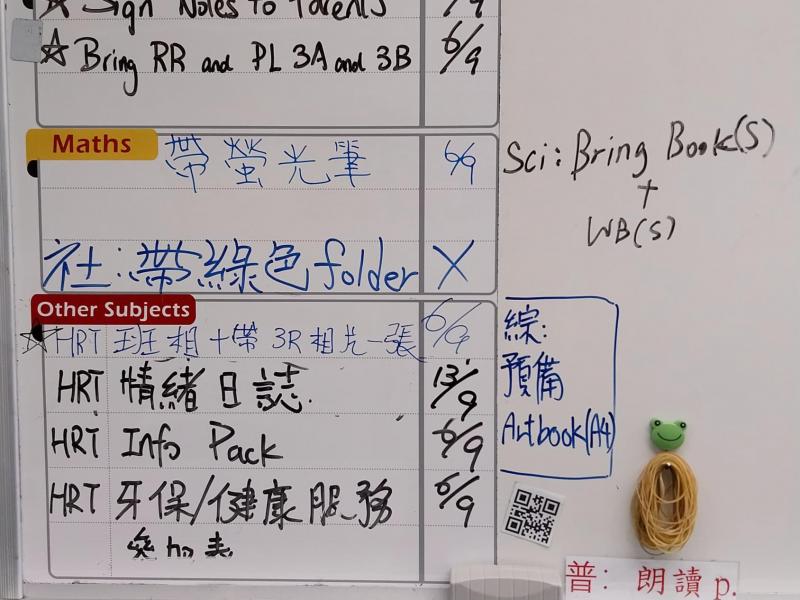 ☆ Sign Notes to Parents 7/9
☆ Bring RR and PL 3A and 3B 6/9
Maths
帶螢光筆 6/9
社：帶綠色folder X
Sci: Bring Book(S)
+
WB(S)
Other Subjects
☆HRT 班相+帶 3R相片一張 6/9
HRT 情緒日誌. 13/9
HRT Info Pack 6/9
HRT 牙保/健康服務 6/9
參加表
綜:
預備
Artbook(A4)
普: 朗讀 p.